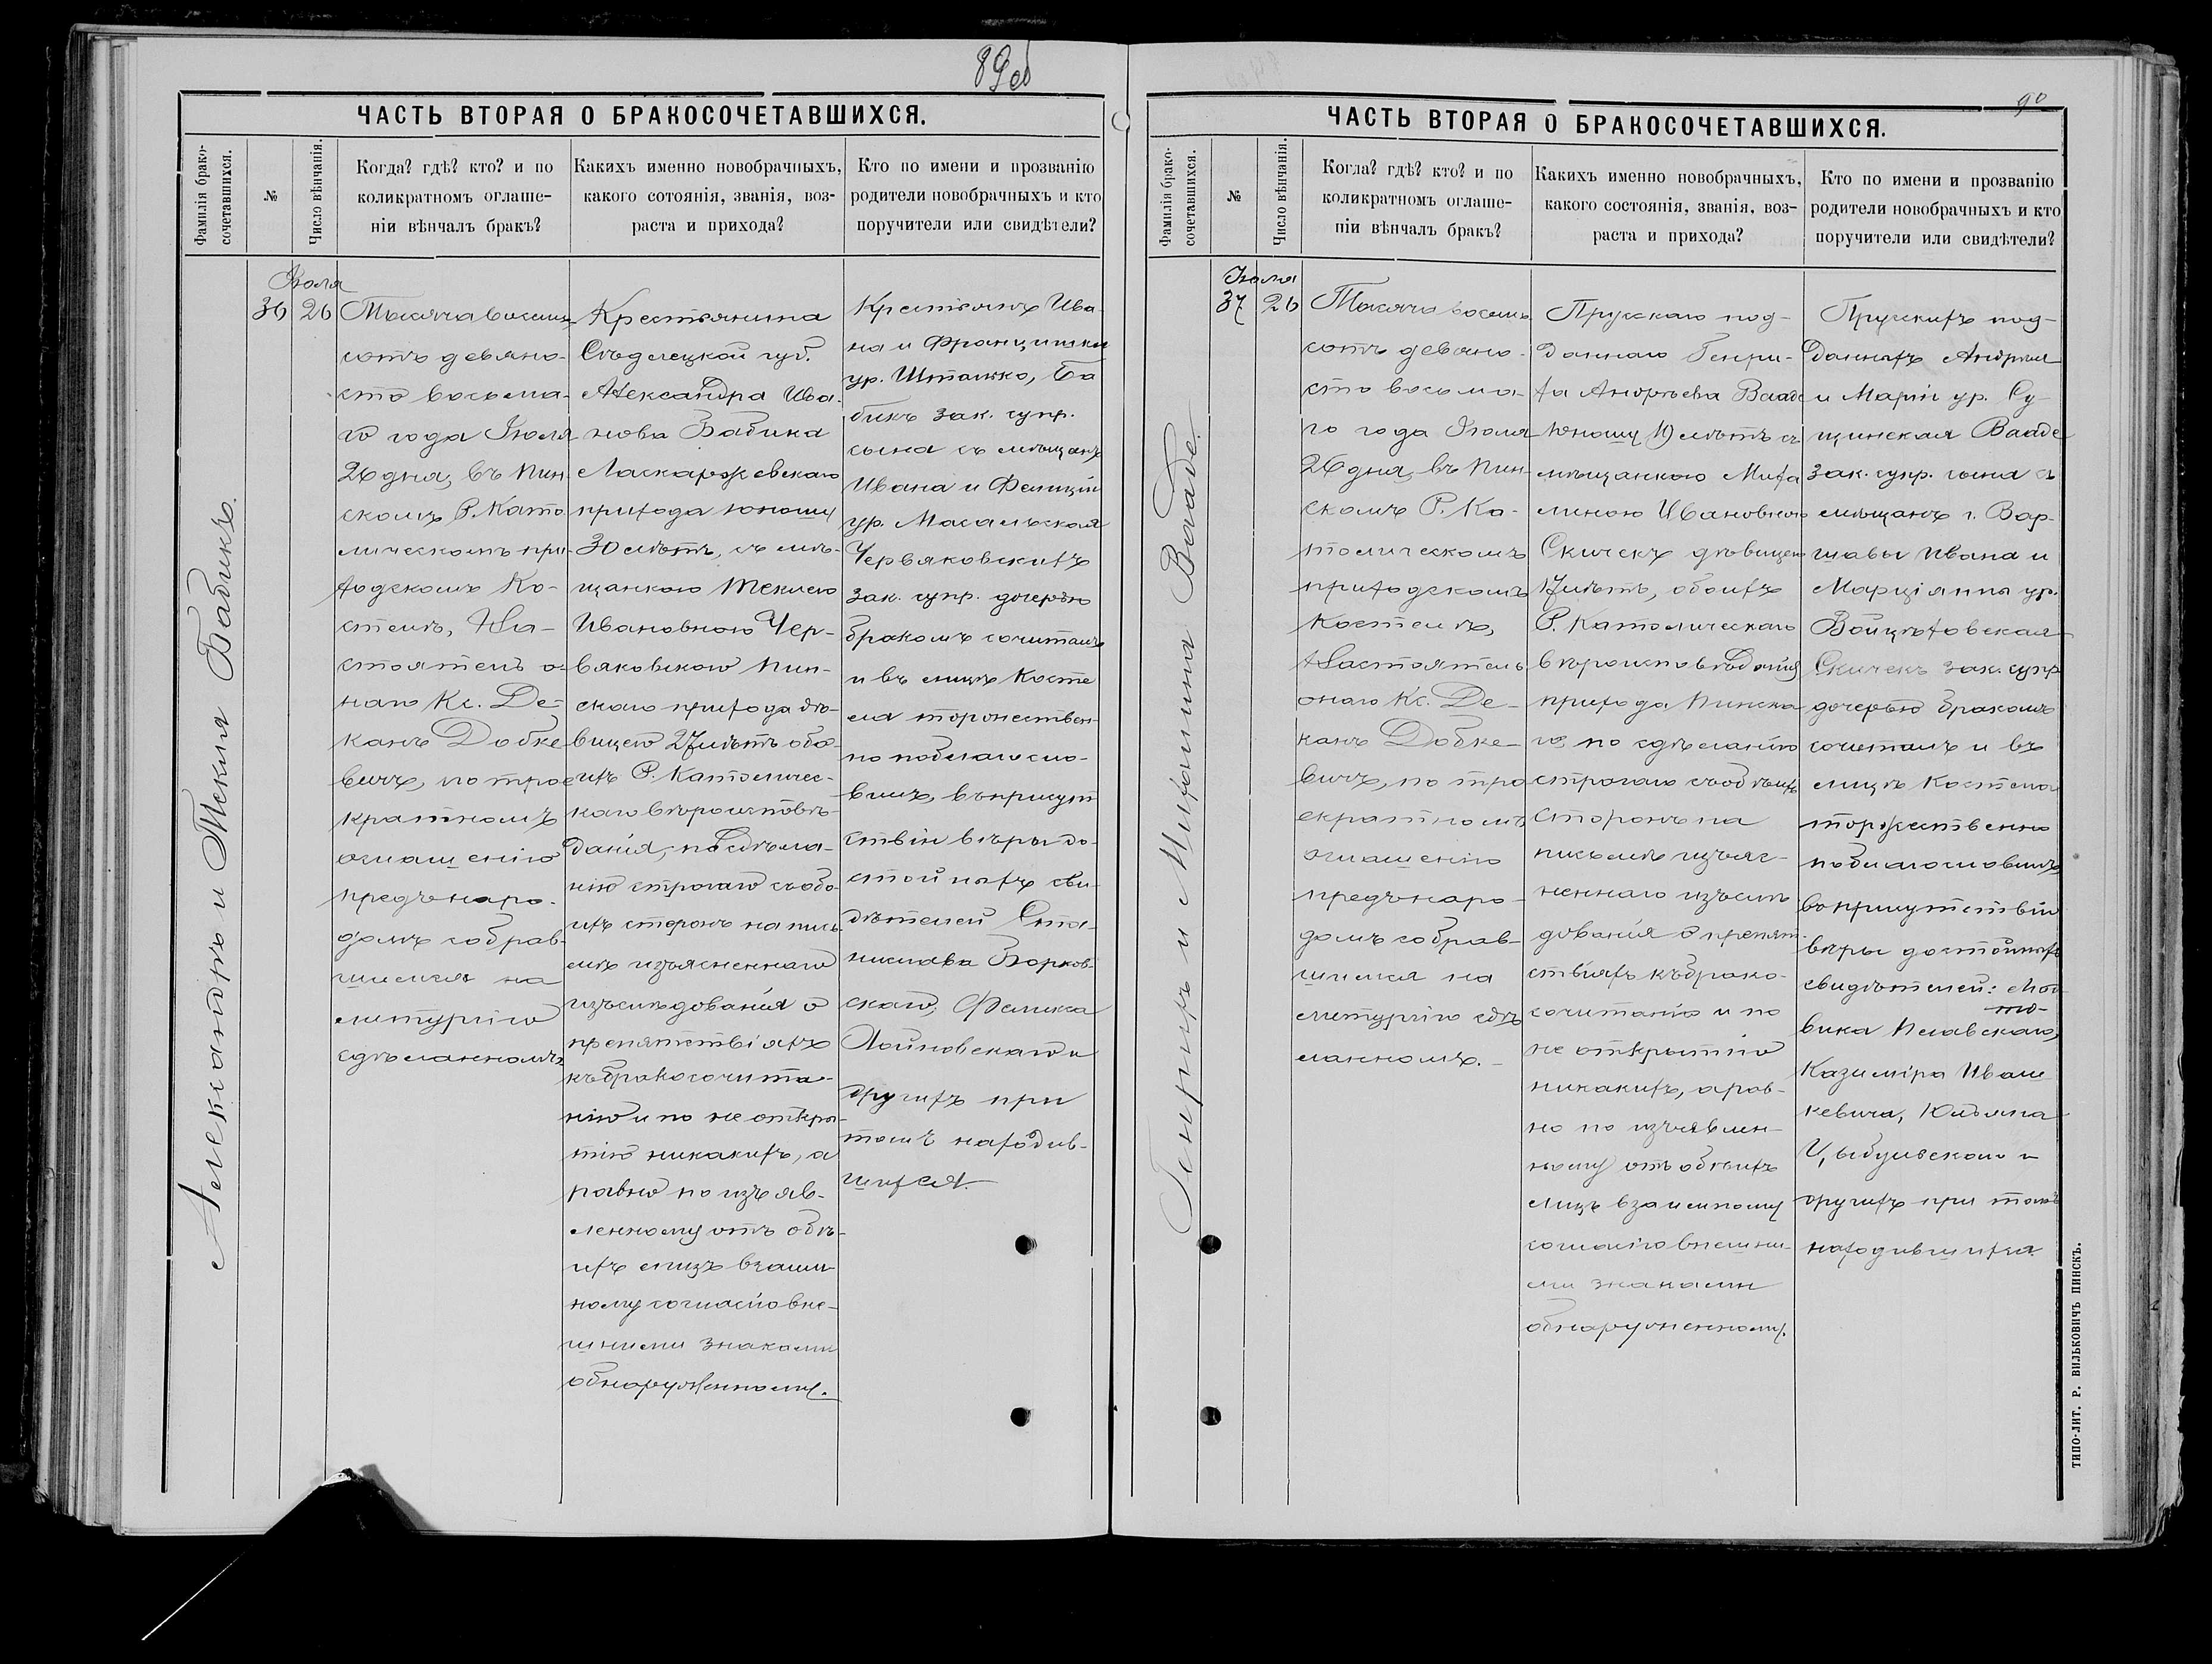 89об
ЧАСТЬ ВТОРАЯ О БРАКОСОЧЕТАВШИХСЯ.
Фамилія брако-
сочетавшихся.
№
Число вѣнчанія.
Когда? гдѣ? кто? и по
коликратномъ оглаше-
ніи вѣнчалъ бракъ?
Какихъ именно новобрачныхъ,
какого сотоянія, званія, воз-
раста и прихода?
Кто по имени и прозванію
родители новобрачныхъ и кто
поручители или свидѣтели?
Александръ и Текля Бабикъ.
Іюля
36
26
Тысяча восемь-
сотъ девяно-
сто восьма-
го года Іюля
26 дня, въ Пин-
скомъ Р. Като
лическомъ при-
ходскомъ Ко-
стелѣ, На-
стоятель о-
наго Кс. Де-
канъ Добке
вичъ, по трое
кратномъ
оглашенію
предъ наро-
домъ собрав-
шимся на
литургію
сдѣланномъ
Крестьянина
Сѣдлецкой губ.
Александра Ива-
нова Бабика
Ласкаржевскаго
прихода юношу
30 лѣтъ, съ мѣ-
щанкою Теклею
Ивановною Чер-
вяковскою Пин-
скаго прихода дѣ-
вицею 27 лѣтъ обо-
ихъ Р. Католичес-
каго вѣроисповѣ-
данія, по сдѣла-
нію строгаго съ обо-
ихъ сторонъ на пись
мѣ изъясненнаго
изъслѣдованія о
препятствіяхъ
къ бракосочита-
нію и по не откры-
тію никакихъ, а
равно по изъяв-
ленному отъ обѣ-
ихъ лицъ взаим-
ному согласію внѣ-
шними знаками
обнаруженному.
Крестьянъ Ива-
на и Францишки
ур. Шталжко, Ба
бикъ зак. супр.
сына съ мѣщанъ
Ивана и Фелиціи
ур. Масальская
Червяковскихъ
зак. супр. дочерью
бракомъ сочиталъ
и въ лицѣ Косте
ла торжествен-
но поблагосло-
вилъ, въ присут
ствіи вѣры до-
стойныхъ сви-
дѣтелей Ста-
нислава Борков-
скаго, Феликса
Лойновскаго и
другихъ при
томъ находив-
шихся.
90
ЧАСТЬ ВТОРАЯ О БРАКОСОЧЕТАВШИХСЯ.
Фамилія брако-
сочетавшихся.
№
Число вѣнчанія.
Когла? гдѣ? кто? и по
коликратномъ оглаше-
ніи вѣнчалъ бракъ?
Какихъ именно новобрачныхъ,
какого состоянія, званія, воз-
раста и прихода?
Кто по имени и прозванію
родители новобрачныхъ и кто
поручители или свидѣтели?
Генрихъ и Михалина Вааде.
Іюля
37
26
Тысяча восемь
сотъ девяно-
сто восьма-
го года Іюля
26 дня, въ Пин-
скомъ Р. Ка-
толическомъ
приходскомъ
Костелѣ,
Настоятель
онаго Кс. Де-
канъ Добке-
вичъ, по тро
екратномъ
оглашенію
предъ наро-
домъ собрав-
шимся на
литургію сдѣ
ланномъ.
Прусскаго под-
даннаго Генри-
ха Андреева Вааде
юношу лѣтъ съ
мѣщанкою Миха
линою Ивановною
Скичекъ дѣвицею
17 лѣтъ, обоихъ
Р. Католическаго
вѣроисповѣданія
прихода Пинска
го по сдѣланію
строгаго съ обѣихъ
сторонъ на
письмѣ изъяс-
неннаго изъслѣ
дованія о препят-
ствіяхъ къ брако-
сочитанію и по
не открытію
никакихъ, а рав-
но по изъявлен-
ному отъ обѣихъ
лицъ взаимному
согласію внѣшни-
ми знаками
обнаруженному.
Прусскихъ под-
данныхъ Андрея
и Маріи ур. Су-
щинская Вааде
зак. супр. сына съ
мѣщанъ г. Вар-
шавы Ивана и
Марціянны ур.
Войцѣховская
Скичекъ зак. супр
дочерью бракомъ
сочиталъ и въ
лицѣ Костела
торжественно
поблагословилъ
въ присутствіи
вѣры достойныхъ
свидѣтелей: Люд
вика
Казиміра Иваш
кевича, Юльяна
Цыбульскаго и
другихъ при томъ
находившихся.
ТИПО-ЛИТ. Р. ВИЛЬКОВИЧЪ ПИНСКЪ.